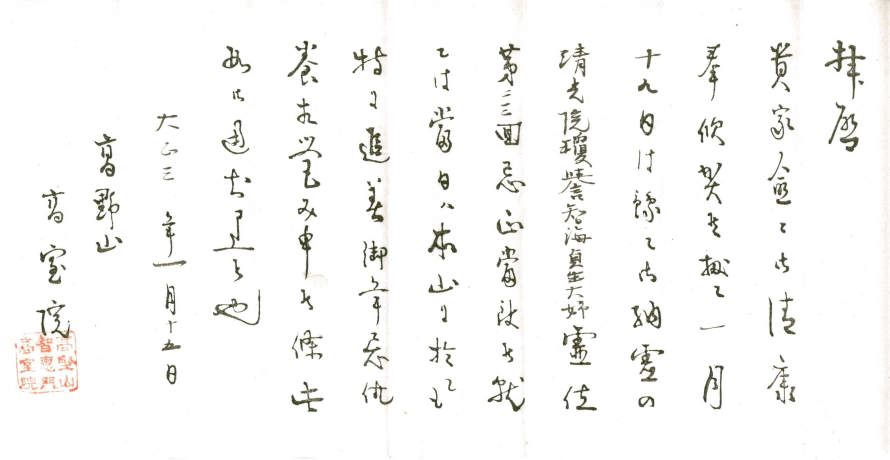 拝啓
貴家益々御清康
奉欣賀候扨て一月
十九日は豫て御納霊の
清光院瓊誉智海貞生大姉霊位
第三回忌正當致候就
ては當日ハ本山に於ても
特に進善御年忌供
養相営み申候條此
如此申上候也
大正三年一月十五日
高野山
高室院
高野山
智恵門
高室院